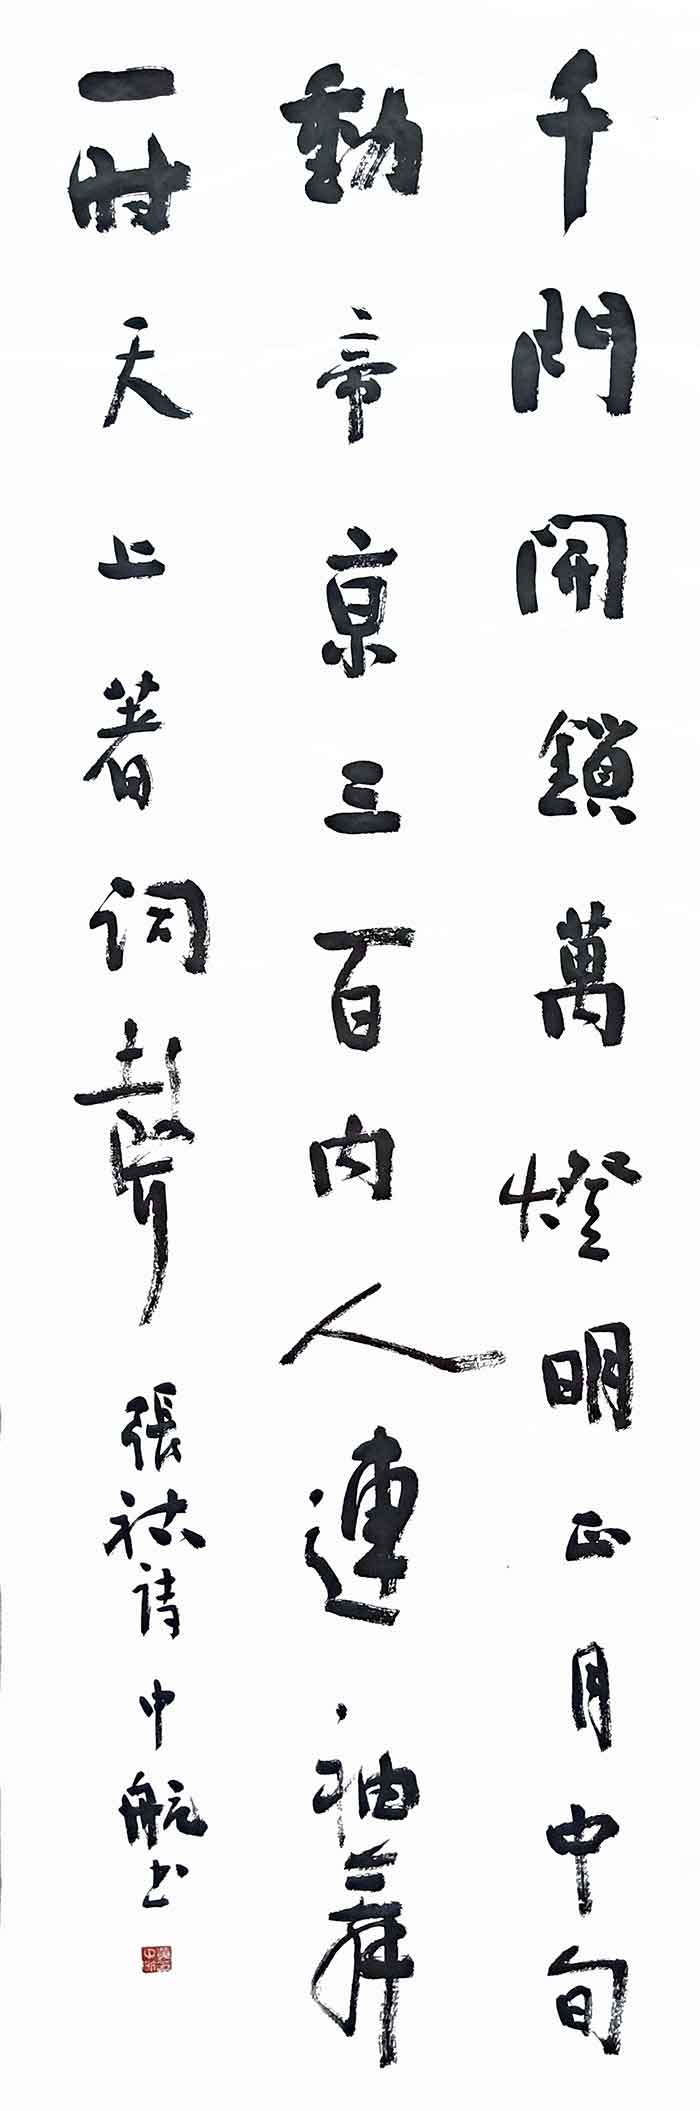 千門開鎖萬燈明正月中旬
動帝京三百內人連袖舞
一时天上著词聲張祜诗中航书